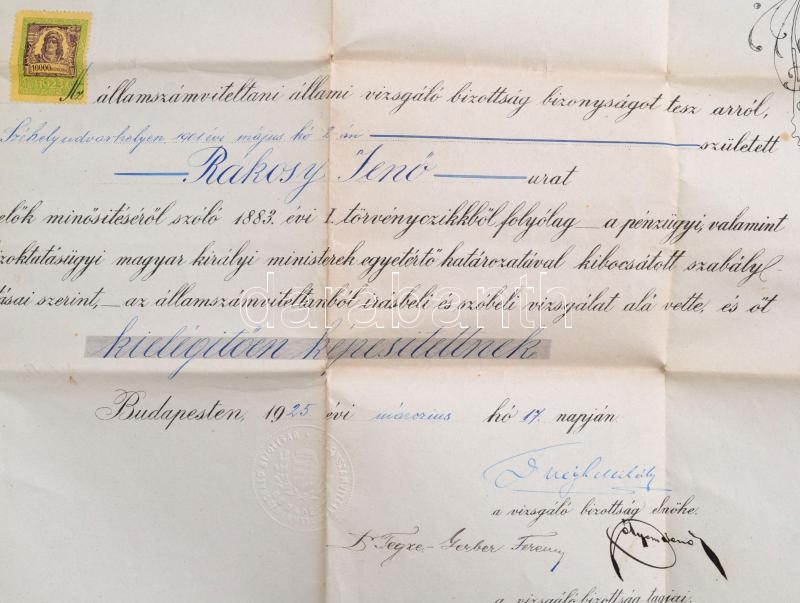 10000
1923
Az államszámviteltani állami vizsgáló bizottság bizonyságot tesz arról,
Székelyudvarhelyen 1901 évi május hó án született
Rákosy Jenő urat
elők minősítéséről szóló 1883. évi I. törvényczikkből folyólag a pénzügyi, valamint
zoktatásügyi magyar királyi ministerek egyetértő határozatával kibocsátott szabály
ásai szerint, az államszámviteltanból írásbeli és szóbeli vizsgálat alá vette, és őt
darabanth
kielégitően képesitettnek
Budapesten, 1925 évi március hó 17. napján.
a vizsgáló bizottság elnöke.
Dr Tegze-Gerber Ferenc
a vizsgáló bizottság tagjai.